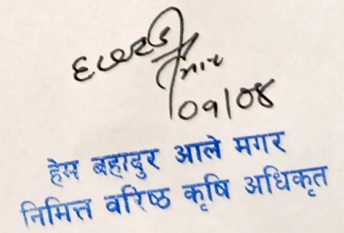 09/08
हेम बहादुर आले मगर
निमित्त वरिष्ठ कृषि अधिकृत